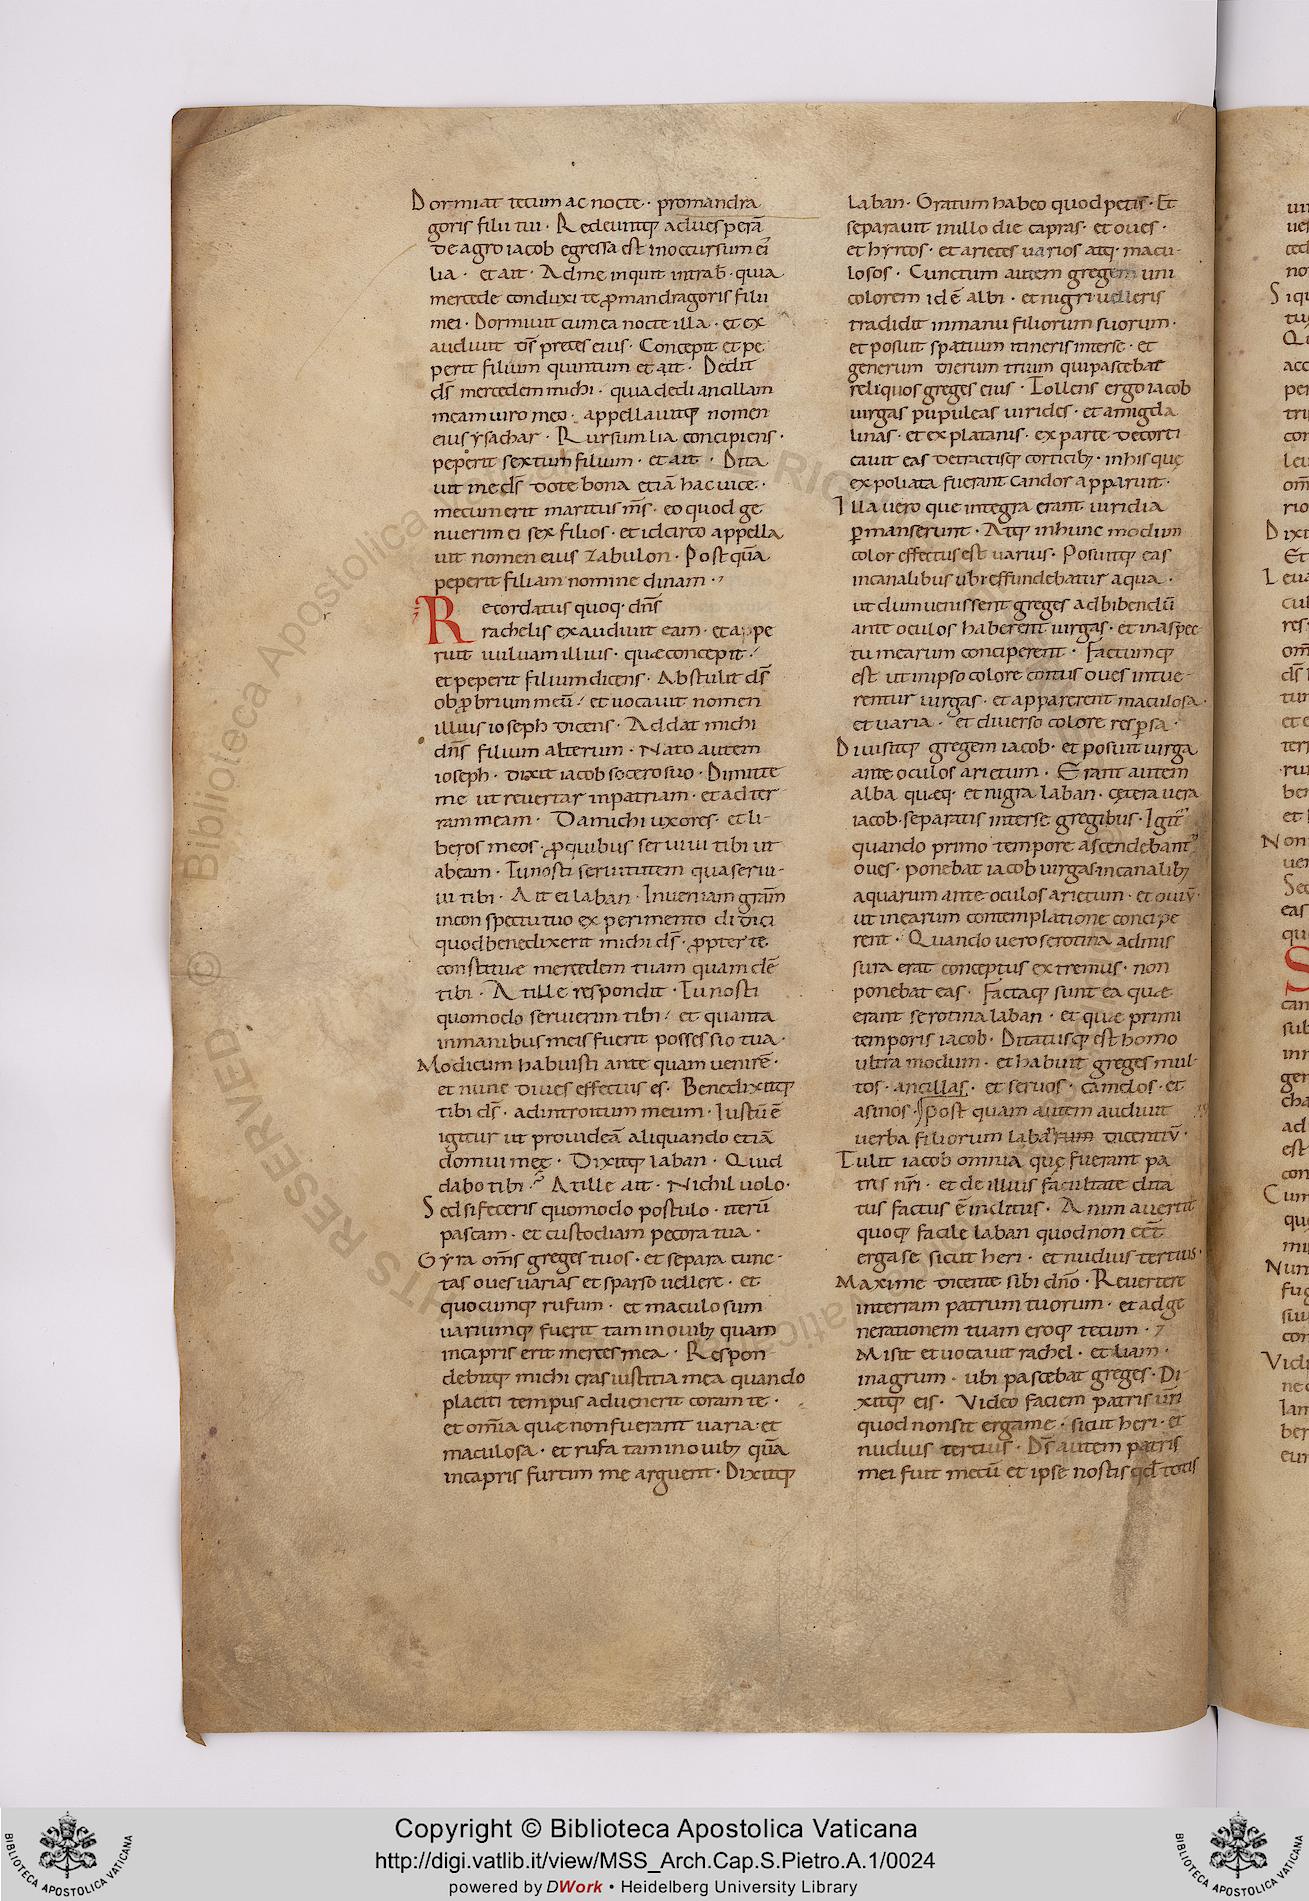 Dormiat tecum ac nocte · promandra
goris filii tui · Redeuntiq; aduesperā
de agro iacob egressa est inoccursum ei
lia · et ait · Adme inquit intrab · quia
mercede conduxi te ꝓmandragoris filii
mei · Dormiuit cum ea nocte illa · et ex
audiuit d̄s preces eius · Concepit et pe
perit filium quintum et ait · Dedit
d̄s mercedem michi · quia dedi ancillam
meam uiro meo · appellauitq; nomen
eius ysachar · Rursum lia concipiens ·
peperit sextum filium · et ait · Dita
uit me d̄s dote bona etiā hac uice ·
mecum erit maritus m̄s · eo quod ge
nuerim ei sex filios · et idcirco appella
uit nomen eius zabulon · Post quā
peperit filiam nomine dinam ·
Recordatus quoq; dn̄s
rachelis exaudiuit eam · et ape
ruit uuluam illius · quæ concepit ·
et peperit filium dicens · Abstulit d̄s
obꝓbrium meū · et uocauit nomen
illius ioseph dicens · Addat michi
dn̄s filium alterum · Nato autem
ioseph · dixit iacob socero suo · Dimitte
me ut reuertar inpatriam · et adter
ram meam · Da michi uxores · et li-
beros meos · ꝓquibus seruiui tibi ut
abeam · Tu nosti seruitutem qua serui-
ui tibi · Ait ei laban · Inueniam grām
inconspectu tuo experimento didici
quod benedixerit michi d̄s · ꝓpter te
constituæ mercedem tuam quam dē
tibi · At ille respondit · Tu nosti
quomodo seruierim tibi · et quanta
inmanibus meis fuerit possessio tua ·
Modicum habuisti ante quam uenirē ·
et nunc diues effectus es · Benedixitq;
tibi d̄s · adintroitum meum · Iustū ē
igitur ut prouideā aliquando etiā
domui meę · Dixitq; laban · Quid
dabo tibi · At ille ait · Nichil uolo ·
Sed si feceris quomodo postulo · iterū
pascam · et custodiam pecora tua ·
Gyra om̄s greges tuos · et separa cunc-
tas oues uarias et sparso uellere · et
quocumq; rufum · et maculosum
uariumq; fuerit tam inouib; quam
incapris erit merces mea · Respon
debitq; michi cras iustitia mea quando
placiti tempus aduenerit coram te ·
et om̄ia quæ non fuerant uaria et
maculosa · et rufa tam inouib; quā
incapris furtim me arguent · Dixitq;
laban · Gratum habeo quod petis · Et
separauit inillo die capras · et oues ·
et hyrcos · et arietes uarios atq; macu-
losos · Cunctum autem gregem uni
colorem id ē albi · et nigri uelleris
tradidit inmanu filiorum suorum ·
et posuit spatium itineris interse · et
generum dierum trium qui pascebat
reliquos greges eius · Tollens ergo iacob
uirgas pupuleas uirides · et amigda
linas · et ex platanis · ex parte decorti
cauit eas detractisq; corticib; · inhis quę
expoliata fuerant candor apparuit ·
Illa uero que integra erant uiridia
ꝑmanserunt · Atq; inhunc modum
color effectus est uarius · Posuitq; eas
incanalibus ubi effundebatur aqua ·
ut dum uenissent greges adbibendū
ante oculos haberent uirgas · et inaspec
tu mearum conciperent · Factumq;
est ut inipso colore coitus oues intue-
rentur uirgas · et apparerent maculosa ·
et uaria · et diuerso colore resꝑsa ·
Diuisitq; gregem iacob · et posuit uirga
ante oculos arietum · Erant autem
alba quæq; · et nigra laban · cętera uera
iacob · separatis interse gregibus · Igit᷑
quando primo tempore ascendebant᷑
oues · ponebat iacob uirgas incanalib;
aquarum ante oculos arietum · et ouiū ·
ut inearum contemplatione concipe
rent · Quando uero serotina admis
sura erat conceptus extremus · non
ponebat eas · Factaq; sunt ea quæ
erant serotina laban · et quæ primi
temporis iacob · Ditatusq; est homo
ultra modum · et habuit greges mul-
tos · ancillas · et seruos · camelos · et
asinos · post quam autem audiuit
uerba filiorum laban dicentiū ·
Tulit iacob omnia quę fuerant pa
tris nr̄i · et de illius facultate dita
tus factus ē inclitus · Anim auertit
quoq; facile laban quod non eēt
erga se sicut heri · et nudius tertius ·
Maxime dicente sibi dn̄o · Reuertere
interram patrum tuorum · et adge
nerationem tuam eroq; tecum ·
Misit et uocauit rachel · et liam ·
inagrum · ubi pascebat greges · Di
xitq; eis · Video faciem patris ur̄i
quod non sit erga me · sicut heri · et
nudius tertius · D̄s autem patris
mei fuit mecū et ipse nostis qd̄ totis
Copyright © Biblioteca Apostolica Vaticana
http://digi.vatlib.it/view/MSS_Arch.Cap.S.Pietro.A.1/0024
powered by DWork • Heidelberg University Library
BIBLIOTECA APOSTOLICA VATICANA
BIBLIOTECA APOSTOLICA VATICANA